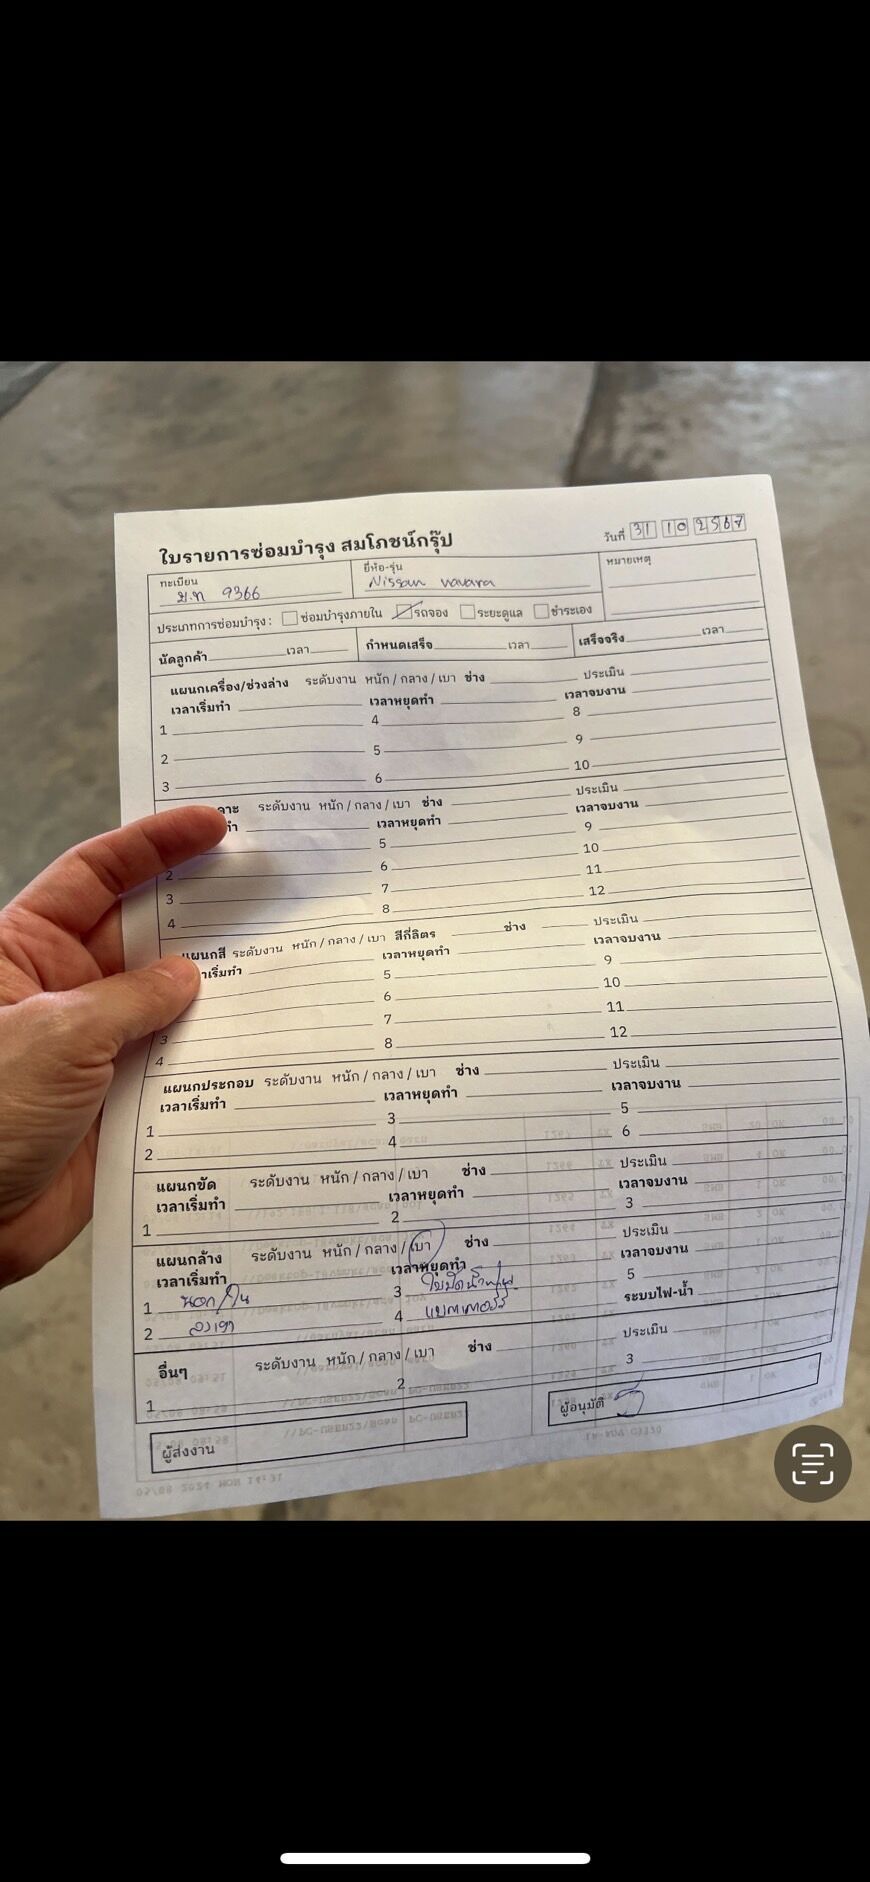 ใบรายการซ่อมบำรุง สมโภชน์กรุ๊ป
วันที่ 31 10 2567
ทะเบียน 9366 ยี่ห้อ-รุ่น Nissan navara หมายเหตุ
ประเภทการซ่อมบำรุง : ซ่อมบำรุงภายใน รถจอง ระยะดูแล ชำระเอง
นัดลูกค้า เวลา กำหนดเสร็จ เวลา เสร็จจริง เวลา
แผนกเครื่อง/ช่วงล่าง ระดับงาน หนัก / กลาง / เบา ช่าง ประเมิน
เวลาเริ่มทำ เวลาหยุดทำ เวลาจบงาน
1 4 8
2 5 9
3 6 10
เคาะ ระดับงาน หนัก / กลาง / เบา ช่าง ประเมิน
ทำ เวลาหยุดทำ เวลาจบงาน
5 9
2 6 10
3 7 11
4 8 12
แผนกสี ระดับงาน หนัก / กลาง / เบา สีกี่ลิตร ช่าง ประเมิน
เวลาเริ่มทำ เวลาหยุดทำ เวลาจบงาน
5 9
6 10
3 7 11
4 8 12
แผนกประกอบ ระดับงาน หนัก / กลาง / เบา ช่าง ประเมิน
เวลาเริ่มทำ เวลาหยุดทำ เวลาจบงาน
1 3 5
2 4 6
แผนกขัด ระดับงาน หนัก / กลาง / เบา ช่าง ประเมิน
เวลาเริ่มทำ เวลาหยุดทำ เวลาจบงาน
1 2 3
แผนกล้าง ระดับงาน หนัก / กลาง / เบา ช่าง ประเมิน
เวลาเริ่มทำ เวลาหยุดทำ เวลาจบงาน
1 นอก/ใน 3 ใบปัดน้ำฝน 5
2 4 แบตเตอรี่ ระบบไฟ-น้ำ
อื่นๆ ระดับงาน หนัก / กลาง / เบา ช่าง ประเมิน
1 2 3
ผู้ส่งงาน ผู้อนุมัติ